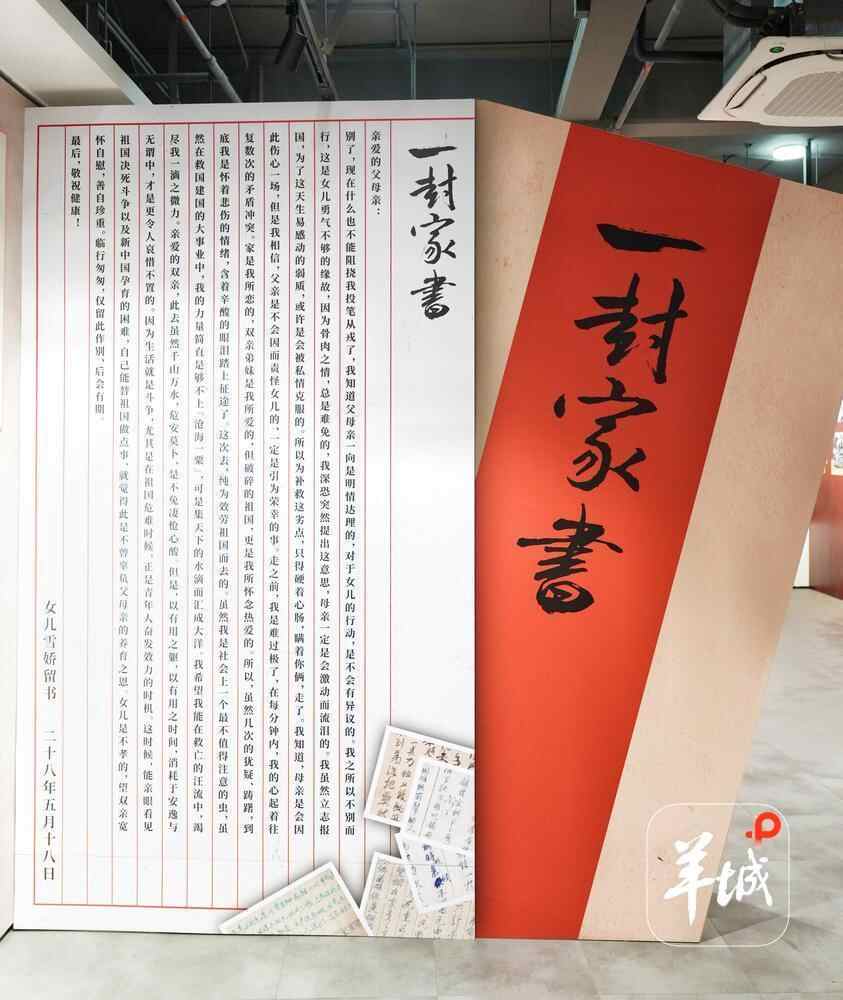 一封家书
亲爱的父母亲：
别了，现在什么也不能阻挠我投笔从戎了，我知道父母亲一向是明情达理的，对于女儿的行动，是不会有异议的。我之所以不别而
行，这是女儿勇气不够的缘故，因为骨肉之情，总是难免的，我深恐突然提出这意思，母亲一定是会激动而流泪的。我虽然立志报
国，为了这天生易感动的弱质，或许是会被私情克服的。所以为补救这劣点，只得硬着心肠，瞒着你俩，走了。我知道，母亲是会因
此伤心一场，但是我相信，父亲是不会因而责怪女儿的，一定是引为荣幸的事。走之前，我是难过极了，在每分钟内，我的心起着往
复数次的矛盾冲突。家是我所恋的，双亲弟妹是我所爱的，但破碎的祖国，更是我所怀念热爱的。所以，虽然几次的犹疑、踌躇，到
底我是怀着悲伤的情绪，含着辛酸的眼泪踏上征途了。这次去，纯为效劳祖国而去的。虽然我是社会上一个最不值得注意的虫，虽
然在救国建国的大事业中，我的力量简直是够不上「沧海一粟」，可是集天下的水滴而汇成大洋。我希望我能在救亡的汪流中，竭
尽我一滴之微力。亲爱的双亲，此去虽然千山万水，危安莫卜，是不免凄怆心酸，但是，以有用之躯，以有用之时间，消耗于安逸与
无谓中，才是更令人哀惜不置的。因为生活就是斗争，尤其是在祖国危难时候，正是青年人奋发效力的时机。这时候，能亲眼看见
祖国决死斗争以及新中国孕育的困难，自己能替祖国做点事，就觉得此是不曾辜负父母亲的养育之恩。女儿是不孝的，望双亲宽
怀自慰，善自珍重。临行匆匆，仅留此作别、后会有期。
最后，敬祝健康！
女儿雪娇留书 二十八年五月十八日
一封家书
羊城